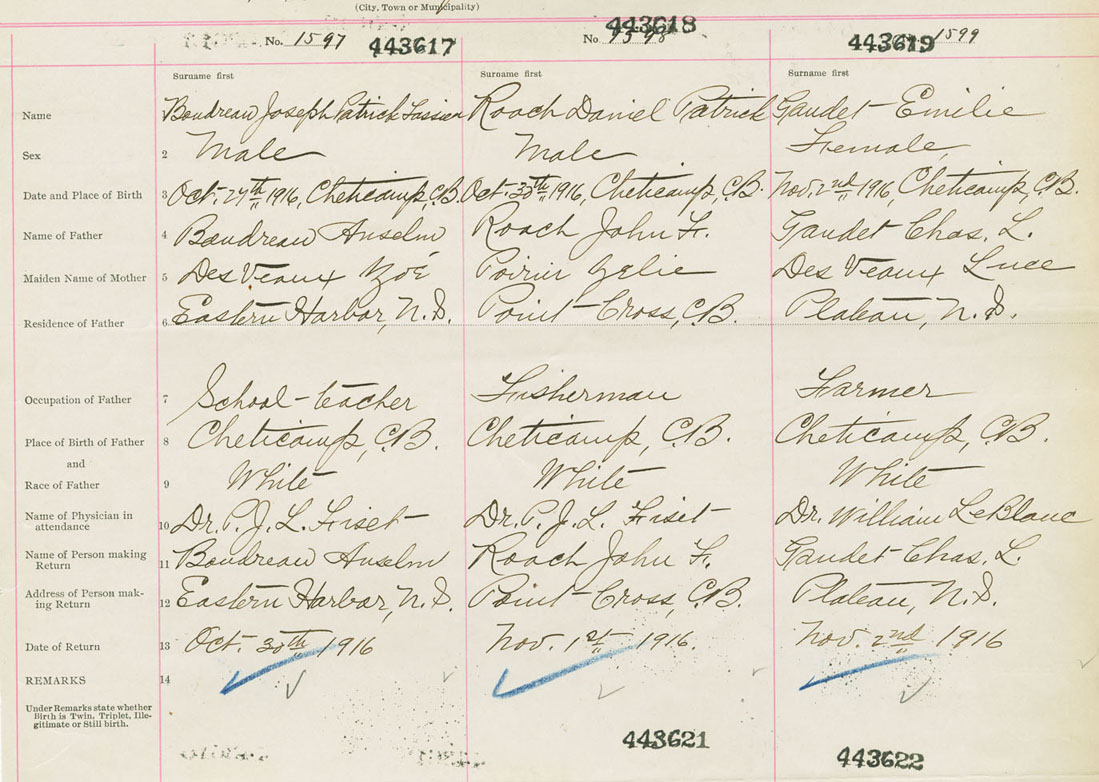 (City, Town or Municipality)
No. 1597 443617 No. 1598 443618 443619 1599
Surname first Surname first Surname first
Name Boudreau Joseph Patrick Roach Daniel Patrick Gaudet Emilie
Sex 2 Male Male Female
Date and Place of Birth 3 Oct. 27th 1916, Cheticamp, C.B. Oct. 30th 1916, Cheticamp, C.B. Nov. 2nd 1916, Cheticamp, C.B.
Name of Father 4 Boudreau Anselm Roach John F. Gaudet Chas. L.
Maiden Name of Mother 5 DesVeaux Zoé Poirier Zelie DesVeaux Luce
Residence of Father 6 Eastern Harbor, N.S. Point-Cross, C.B. Plateau, N.S.
Occupation of Father 7 School-teacher Fisherman Farmer
Place of Birth of Father 8 Cheticamp, C.B. Cheticamp, C.B. Cheticamp, C.B.
and
Race of Father 9 White White White
Name of Physician in attendance 10 Dr. P. J. L. Fiset Dr. P. J. L. Fiset Dr. William LeBlanc
Name of Person making Return 11 Boudreau Anselm Roach John F. Gaudet Chas. L.
Address of Person making Return 12 Eastern Harbor, N.S. Point-Cross, C.B. Plateau, N.S.
Date of Return 13 Oct. 30th 1916 Nov. 1st 1916. Nov. 2nd 1916
REMARKS 14
Under Remarks state whether
Birth is Twin, Triplet, Ille-
gitimate or Still birth.
443621 443622